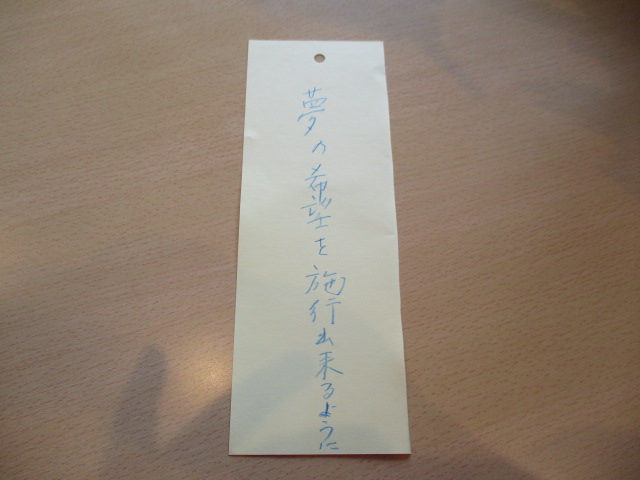 夢の希望を施行出来るように